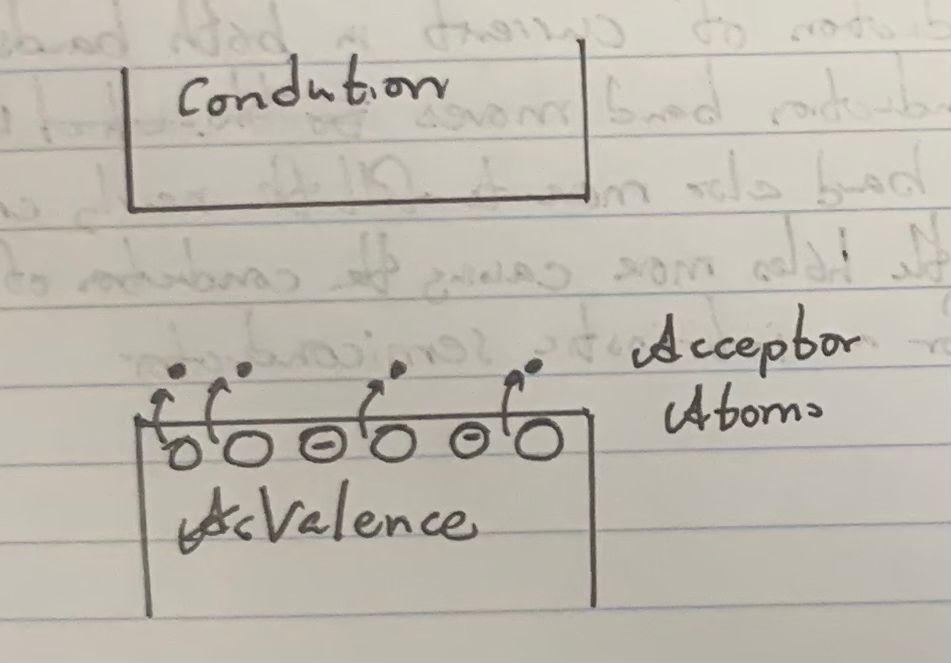 Condution
Acceptor
Atoms
Valence